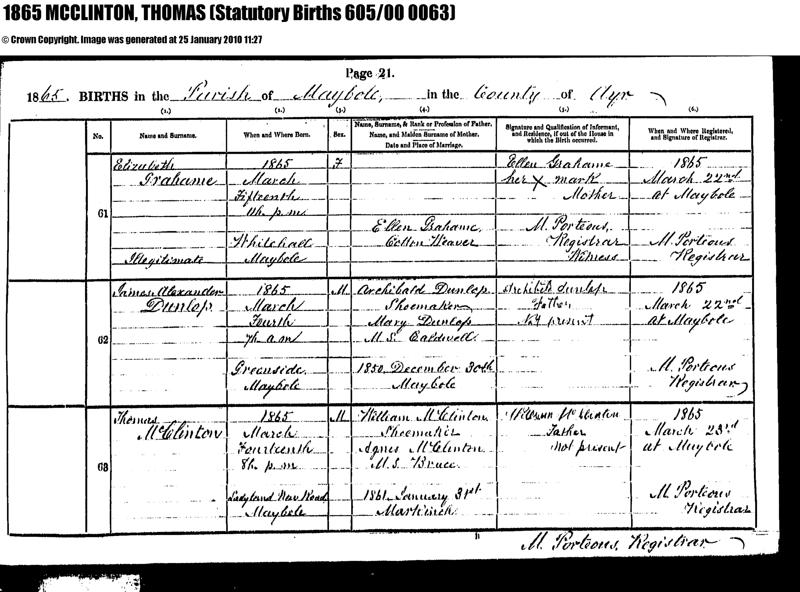 1865 MCCLINTON, THOMAS (Statutory Births 605/00 0063)
© Crown Copyright. Image was generated at 25 January 2010 11:27
Page 21.
1865. BIRTHS in the Parish of Maybole, in the County of Ayr
(1.) (2.) (3.) (4.) (5.) (6.)
No.
Name and Surname.
When and Where Born.
Sex.
Name, Surname, & Rank or Profession of Father.
Name, and Maiden Surname of Mother.
Date and Place of Marriage.
Signature and Qualification of Informant,
and Residence, if out of the House in
which the Birth occurred.
When and Where Registered,
and Signature of Registrar.
61
Elizabeth
Grahame
Illegitimate
1865
March
Fifteenth
11h. p.m.
Whitehall
Maybole
F
Ellen Grahame
Cotton Weaver
Ellen Grahame
her X mark
Mother
M. Porteous,
Registrar
Witness
1865
March 22nd
at Maybole
M. Porteous
Registrar
62
James Alexander
Dunlop
1865
March
Fourth
7h. a.m.
Greenside
Maybole
M
Archibald Dunlop
Shoemaker
Mary Dunlop
M.S. Caldwell
1850 December 30th
Maybole
Archibald Dunlop
Father
Not present
1865
March 22nd
at Maybole
M. Porteous
Registrar
63
Thomas
McClinton
1865
March
Fourteenth
8h. p.m.
Ladyland New Road
Maybole
M
William McClinton
Shoemaker
Agnes McClinton
M.S. Bruce
1861 January 31st
Markinch
William McClinton
Father
Not present
1865
March 23rd
at Maybole
M. Porteous
Registrar
M. Porteous, Registrar